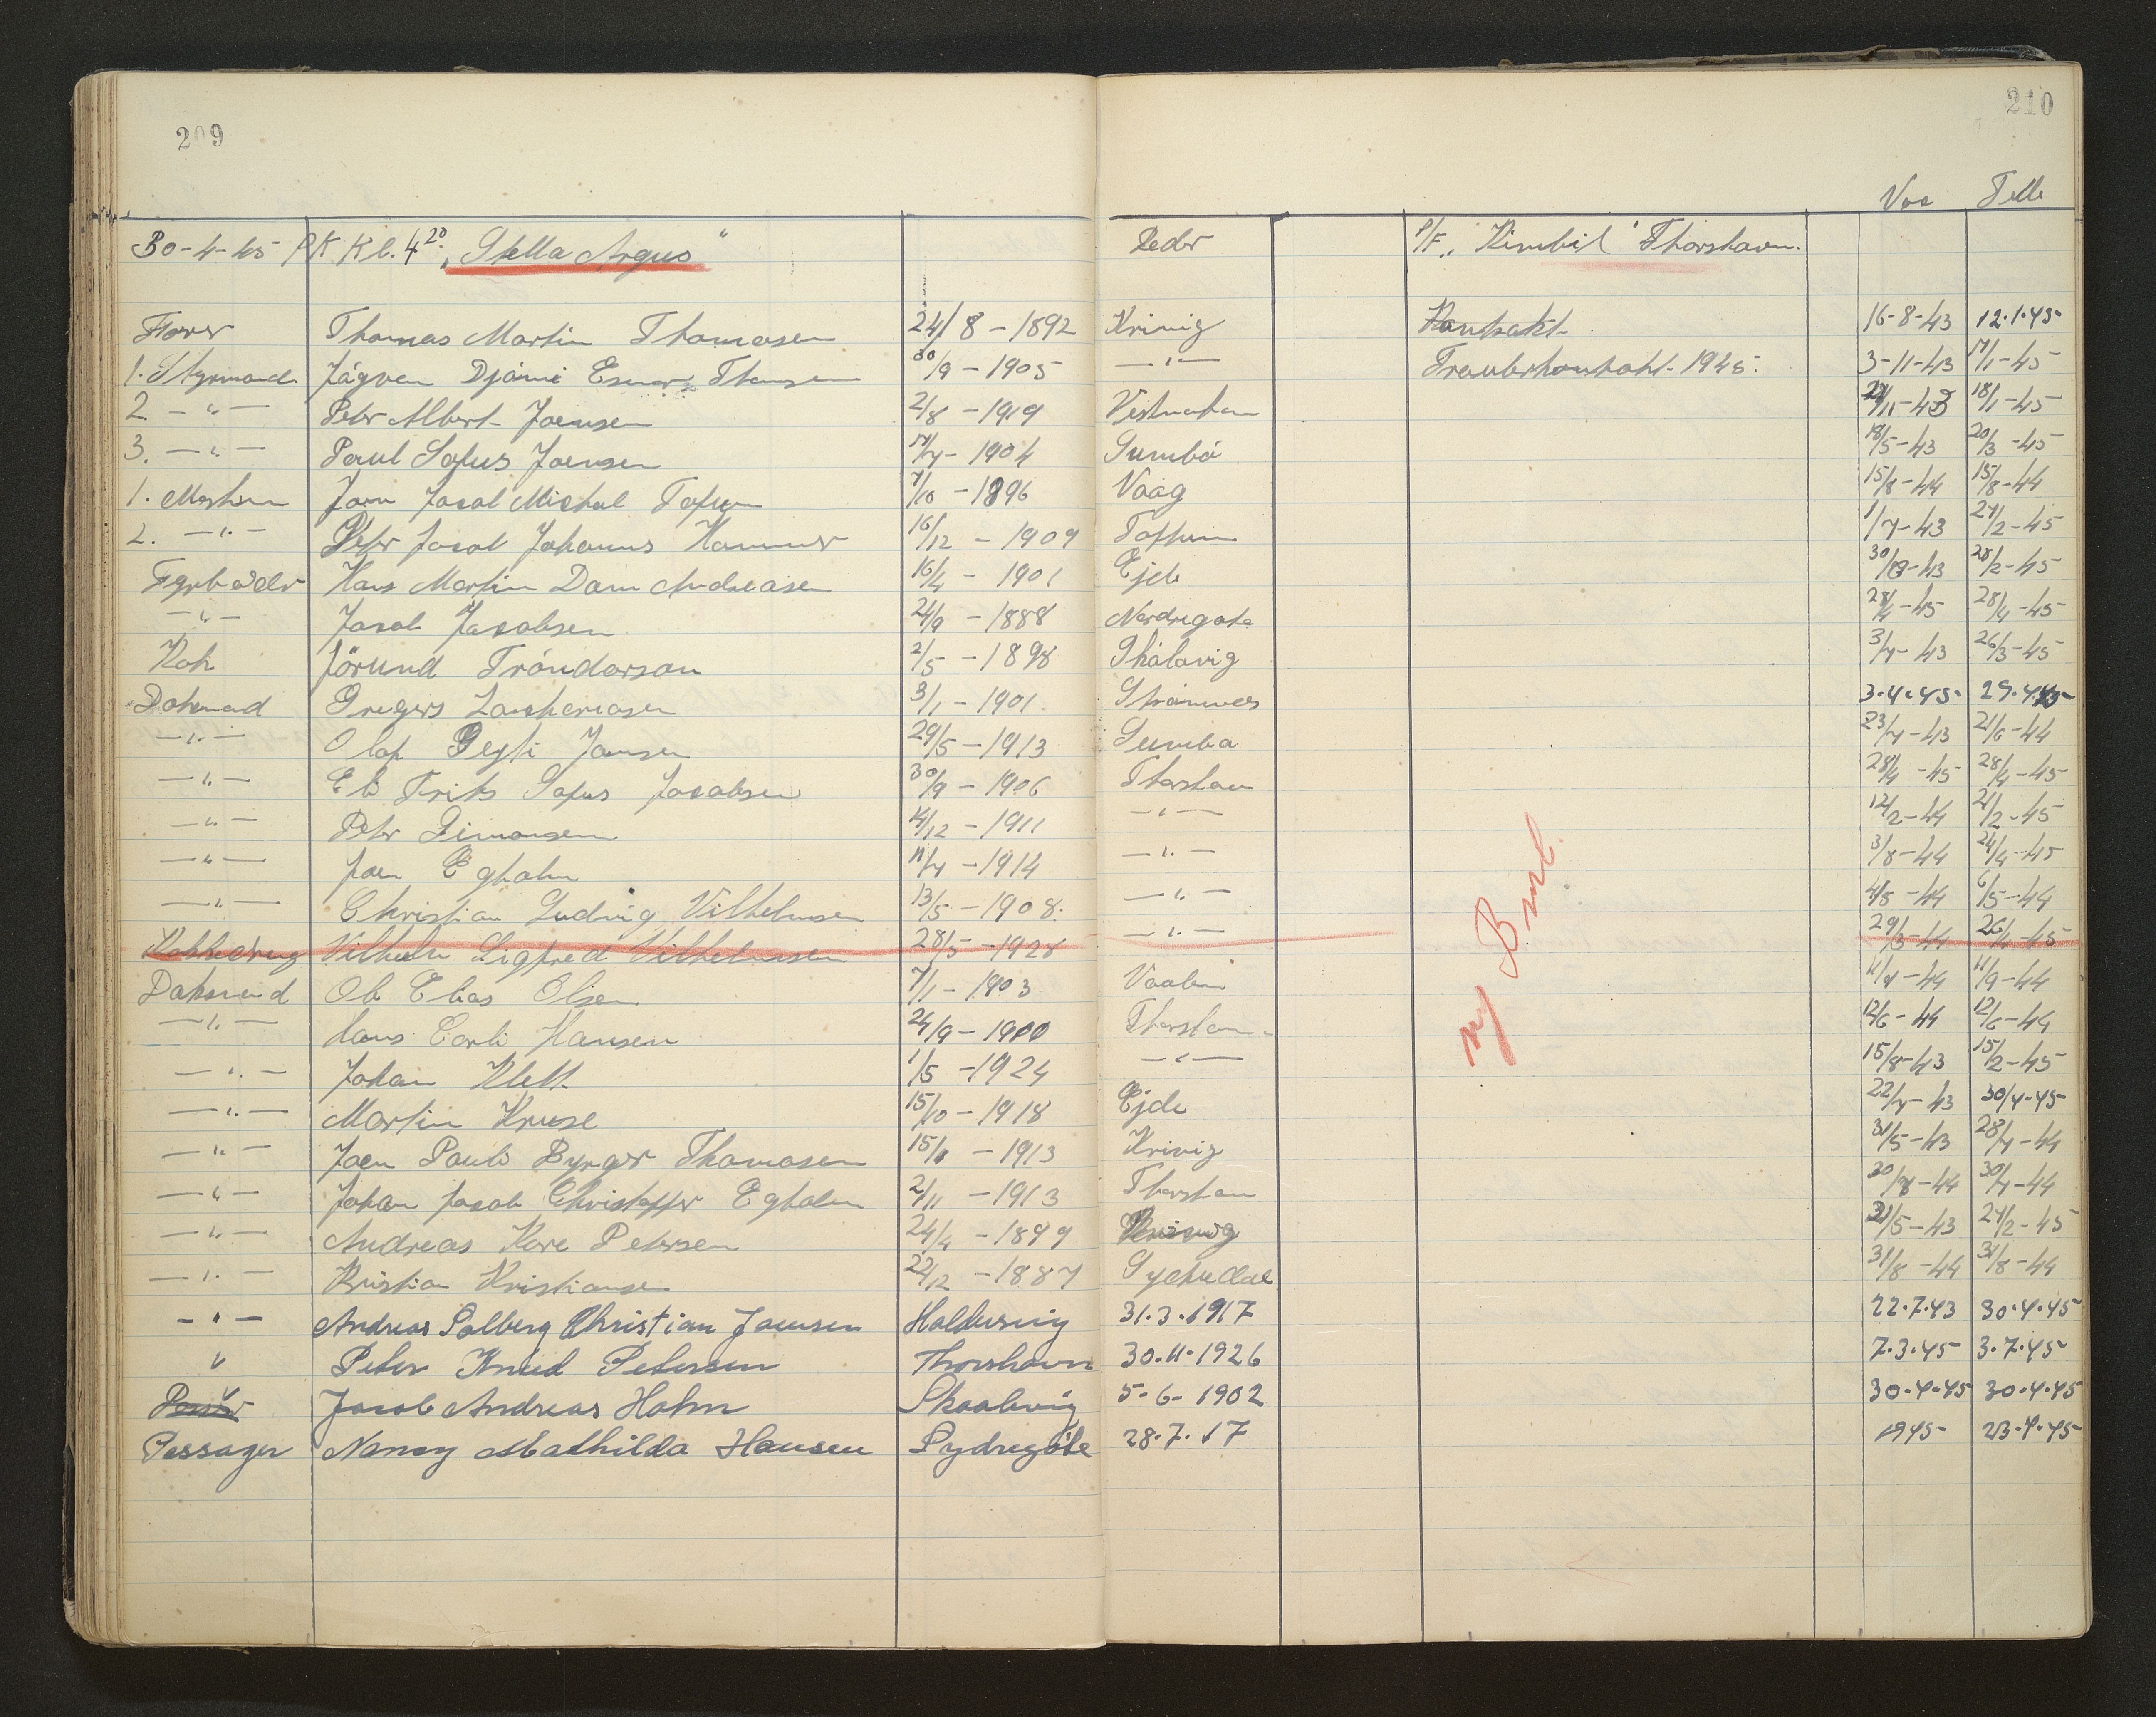 209
210
Vac Telle
30-4-45 PK Kl. 4 20. "Stella Argus" Reder P/F. "Kimbil" Thorshavn.
Förer Thomas Martin Thomasen 24/8 - 1892 Kvivig Kontrakt 16-8-43 12.1.45
1. Styrmand Jágvan Djóni Thomsen 30/9 - 1905 - " - Trawlerkontrakt 1945. 3-11-43 17/1-45
2. - " - Peter Albert Joensen 2/8 - 1919 Vestmahan 18/1-45
3. - " - Poul Sofus Joensen 17/7 - 1904 Sumbö 18/5-43 20/3-45
1. Mester Joen Jacob Michal 7/10 - 1896 Vaag 15/8-44 15/8-44
2. - " - Peter Jacob Johannus Hammer 16/12 - 1909 Toftum 1/7-43 27/2-45
Fyrböder Hans Martin Dam Andreasen 16/4 - 1901 Ejde 28/2-45
- " - Jacob Jacobsen 24/9 - 1888 Nordregöte 28/4-45 28/4-45
Kok Jörund Tróndarson 2/5 - 1898 Skálavig 3/7-43 26/3-45
Daksmand Gregers Zachariasen 3/1 - 1901 Strömnæs 3.4.45 29.4.45
- " - Olaf Jensen 29/5 - 1913 Sumba 23/7-43 21/6-44
- " - Eli Frits Sofus Jacobsen 30/9 - 1906 Thorshavn 28/4-45 28/4-45
- " - Peter Simonsen 14/12 - 1911 - " - 12/2-44 21/2-45
- " - Joen Egholm 11/7 - 1914 - " - 3/8-44 24/4-45
- " - Christian Ludvig Vilhelmsen 13/5 - 1908. - " - 4/8-44 6/5-44
Kokkedreng Vilhelm Sigfred Vilhelmsen 28/5 - 1928 - " - 29/3-44 26/4-45
Daksmand Ole Elias Olsen 7/1 - 1903 11/9-44 11/9-44
- " - Hans Carli Hansen 24/9 - 1900 Thorshavn 12/6-44 12/6-44
- " - Johan Klett 1/5 - 1924 - " - 15/8-43 15/2-45
- " - Martin Kruse 15/10 - 1918 Ejde 22/7-43 30/4-45
- " - Joen Pauli Byrger Thomasen 15/1 - 1913 Kvivig 31/5-43 28/7-44
- " - Johan Jacob Christoffer Egholm 2/11 - 1913 Thorshavn 30/8-44 30/7-44
- " - Andreas Kare Petersen 24/4 - 1899 31/5-43 27/2-45
- " - Kristian Kristiansen 22/12 - 1887 31/8-44 31/8-44
- " - Andreas Solberg Christian Joensen Haldersvig 31.3.1917 22.7.43 30.4.45
" Peter Knud Petersen Thorshavn 30.11.1926 7.3.45 3.7.45
" Jacob Andreas Hohn Skaalevig 5-6-1902 30.4.45 30.4.45
Passager Nancy Mathilda Hansen Sydregöte 28.7.17 1945 23.4.45
ny